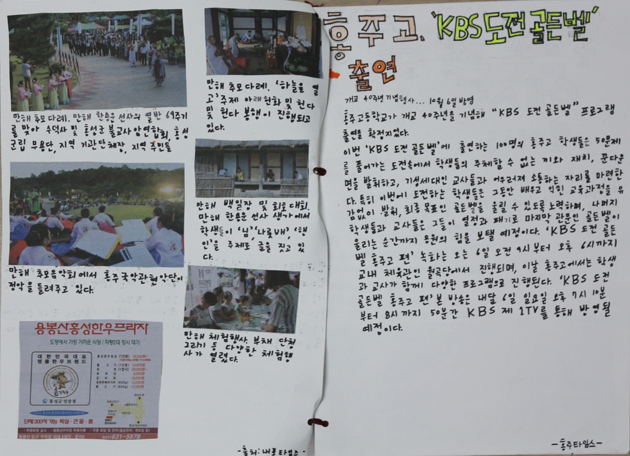 만해 추모다례. 만해 한용운 선사의 열반 69주기
를 맞아 수덕사 및 홍성군 불교사암연합회, 홍성
군립 무용단, 지역 기관단체장, 지역주민들
만해 추모다례. '하늘로 열
고' 주제 아래 헌화 및 헌다
및 헌다 봉행이 진행되고
있다.
만해 백일장 및 회로대회.
만해 한용운 선사 생가에서
학생들이 '님', '나룻배', '행
인'을 주제로 글을 짓고 있
다.
만해 추모음악회에서 홍주국악관현악단이
정악을 들려주고 있다.
만해 체험행사. 부채 단청
그리기 등 다양한 체험행
사가 열렸다.
용봉산홍성한우프라자
대한민국대표
명품한우브랜드
631-5878
-출처: 내포타임스-
홍주고, 'KBS 도전골든벨'
출연
개교 40주년 기념행사... 10월 6일 방영
홍주고등학교가 개교 40주년을 기념해 "KBS 도전 골든벨" 프로그램
출연을 확정지었다.
이번 'KBS 도전골든벨'에 출연하는 100명의 홍주고 학생들은 50문제
를 풀어가는 도전속에서 학생들의 주체할 수 없는 끼와 재치, 꿈다운
면을 발휘하고, 기성세대인 교사들과 어우러져 소통하는 자리를 마련한
다. 특히 이번에 도전하는 학생들은 그동안 배우고 익힌 교육과정을 유
감없이 발휘, 최종 목표인 골든벨을 울릴 수 있도록 노력하며, 나머지
학생들과 교사들은 그들의 열정과 패기로 마지막 관문인 골든벨이
울리는 순간까지 응원의 힘을 보탤 예정이다. 'KBS 도전 골든
벨 홍주고 편' 녹화는 오는 6일 오전 9시부터 오후 6시까지
교내 체육관인 월곡당에서 진행되며, 이날 홍주고에서는 학생
과 교사가 함께 다양한 프로그램으로 진행된다. 'KBS 도전
골든벨 홍주고 편' 본 방송은 내달 6일 일요일 오후 7시 10분
부터 8시까지 50분간 KBS 제1TV를 통해 방영될
예정이다.
-홍주타임스-